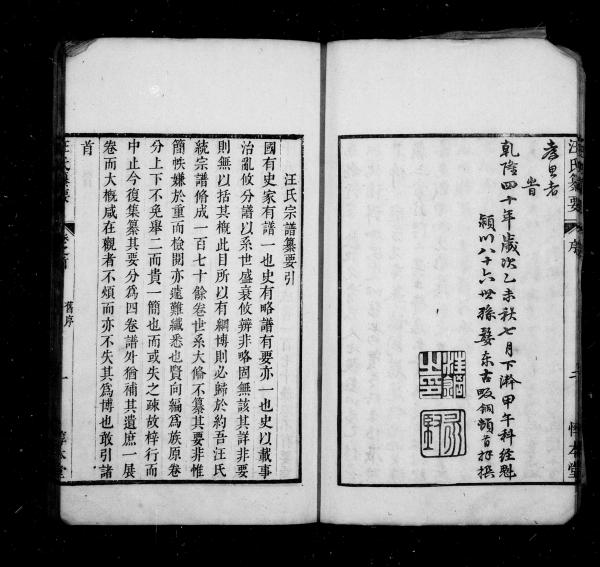 汪氏纂要
序
二
惇本堂
考思者
旹
乾隆四十年歲次乙未秋七月下澣甲午科經魁
潁川八十六世孫婺東古畈銅頓首拜撰
汪氏宗譜纂要引
國有史家有譜一也史有略譜有要亦一也史以載事
治亂攸分譜以系世盛衰攸辨非略固無該其詳非要
則無以括其槪此目所以有綱博則必歸於約吾汪氏
統宗譜脩成一百七十餘卷世系大脩不纂其要非惟
簡帙嫌於重而檢閱亦遠難纖悉也賢向編爲族原卷
分上下不免舉二而貴一簡也而或失之疎故梓行而
中止今復集纂其要分爲四卷譜外猶補其遺庶一展
卷而大槪咸在觀者不煩而亦不失其爲博也敢引諸
首
舊序
一
惇本堂